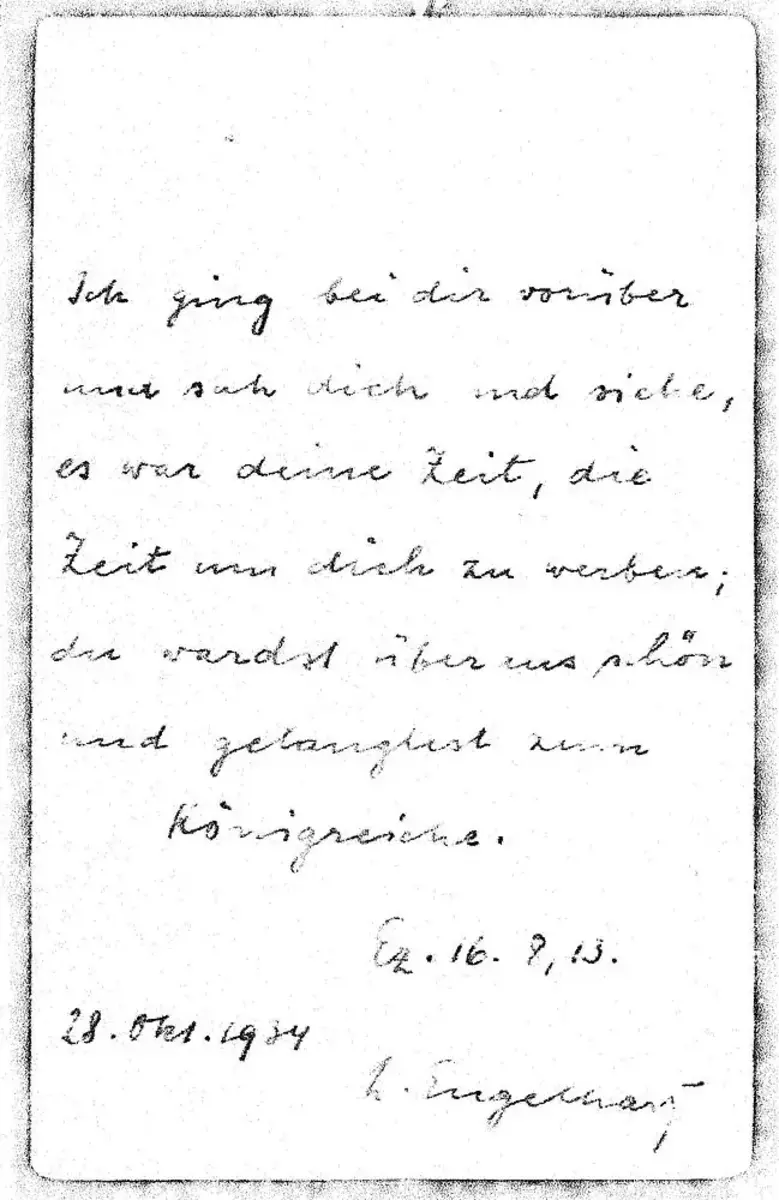 Ich ging bei dir vorüber
und sah dich und siehe,
es war deine Zeit, die
Zeit um dich zu werben;
du wardst überaus schön
und gelangtest zum
Königreiche.
Ez. 16. 8,13.
28. Okt. 1934
L. Engelhart